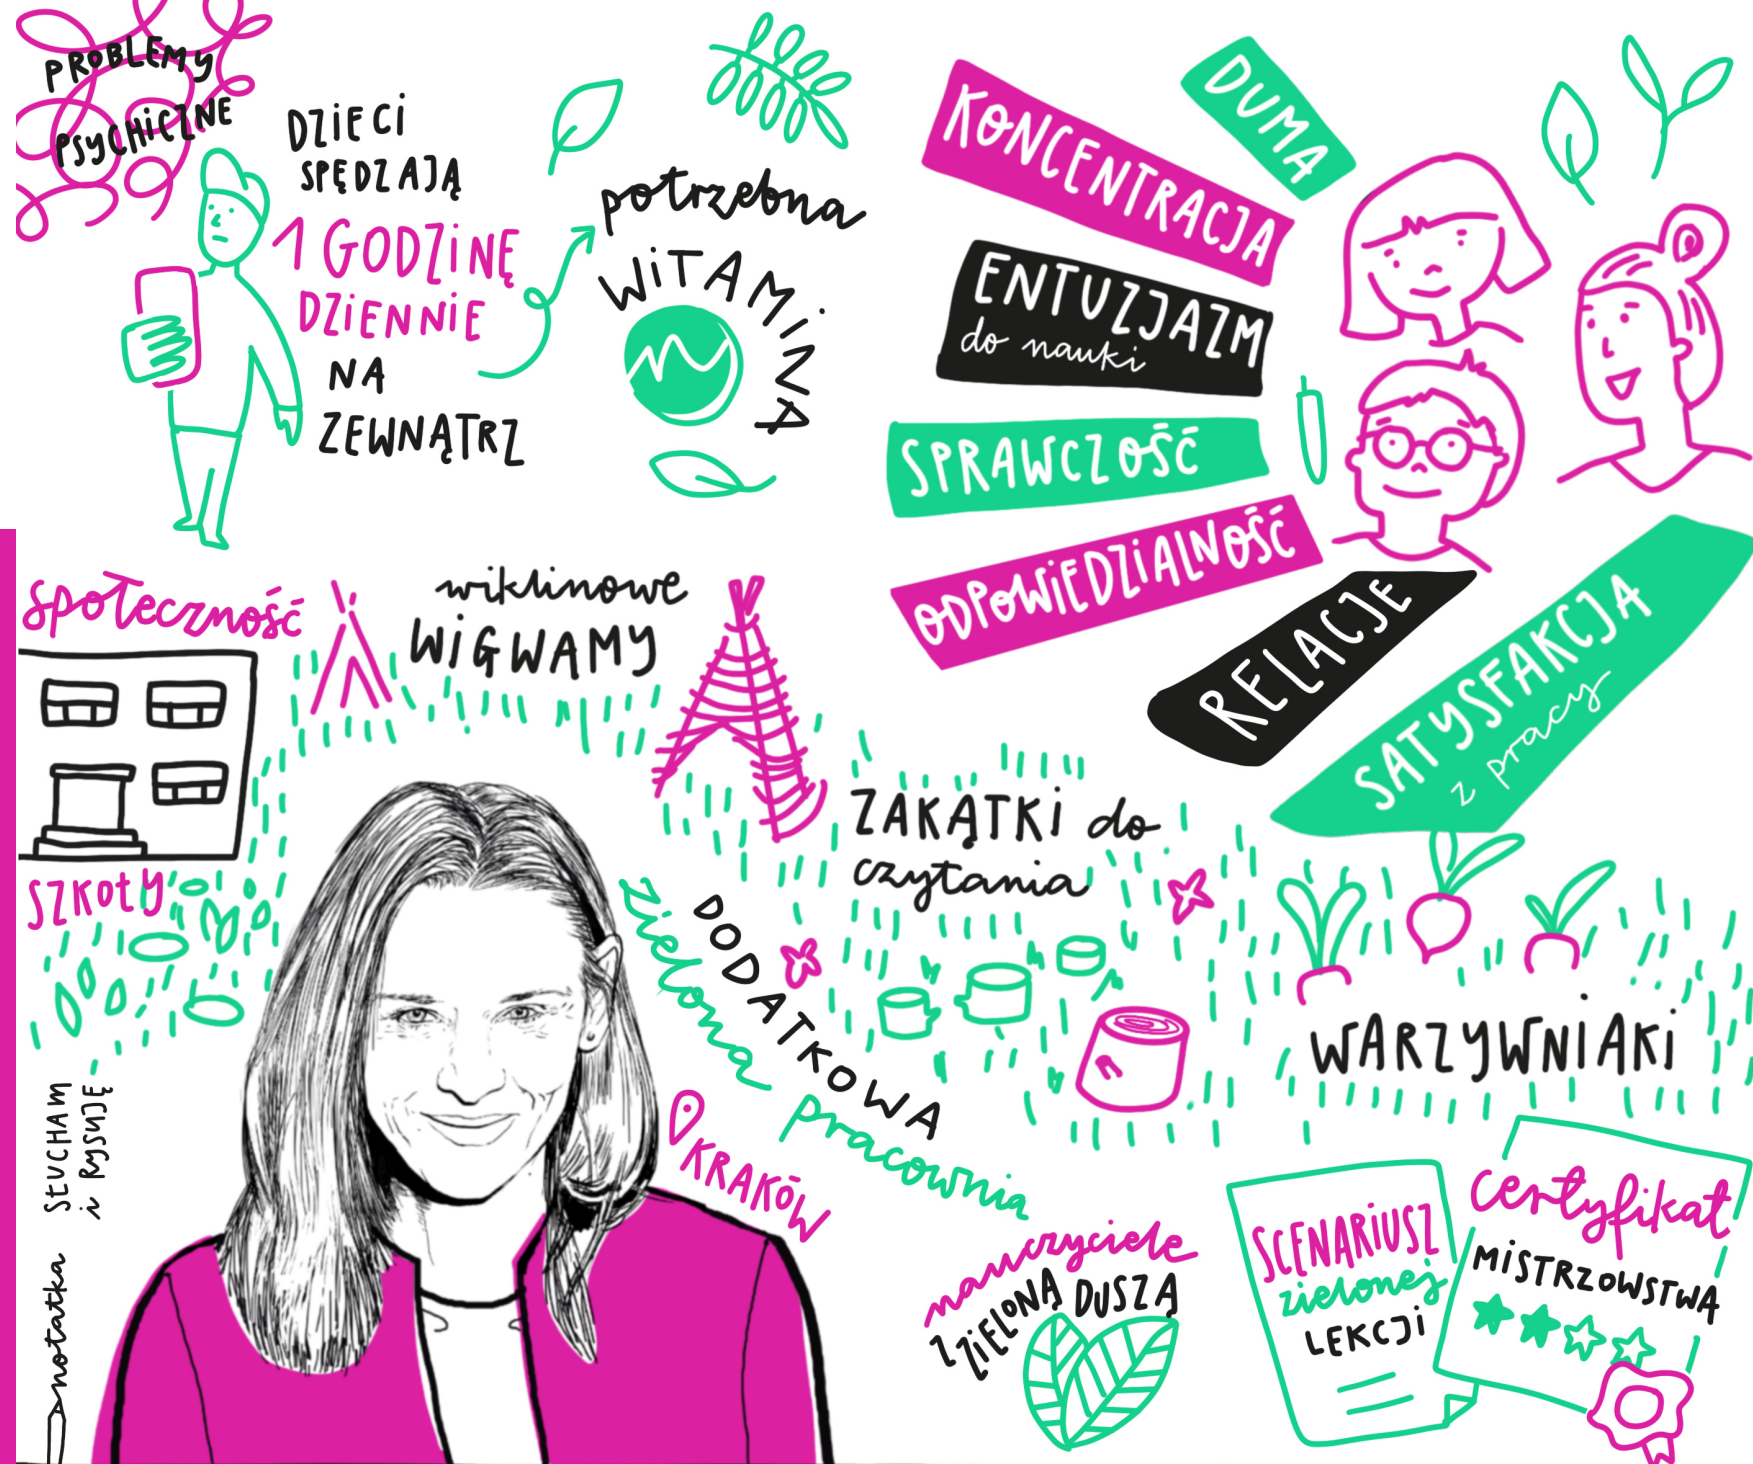 PROBLEMY
PSYCHICZNE
DZIECI
SPĘDZAJĄ
1 GODZINĘ
DZIENNIE
NA
ZEWNĄTRZ
potrzebna
WITAMINA
N
KONCENTRACJA
DUMA
ENTUZJAZM
do nauki
SPRAWCZOŚĆ
ODPOWIEDZIALNOŚĆ
RELACJE
SATYSFAKCJA
z pracy
społeczność
SZKOŁY
wiklinowe
WIGWAMY
ZAKĄTKI do
czytania
DODATKOWA
zielona
pracownia
KRAKÓW
WARZYWNIAKI
nauczyciele
Z ZIELONĄ DUSZĄ
SCENARIUSZ
zielonej
LEKCJI
certyfikat
MISTRZOWSTWA
notatka
SŁUCHAM
i RYSUJĘ